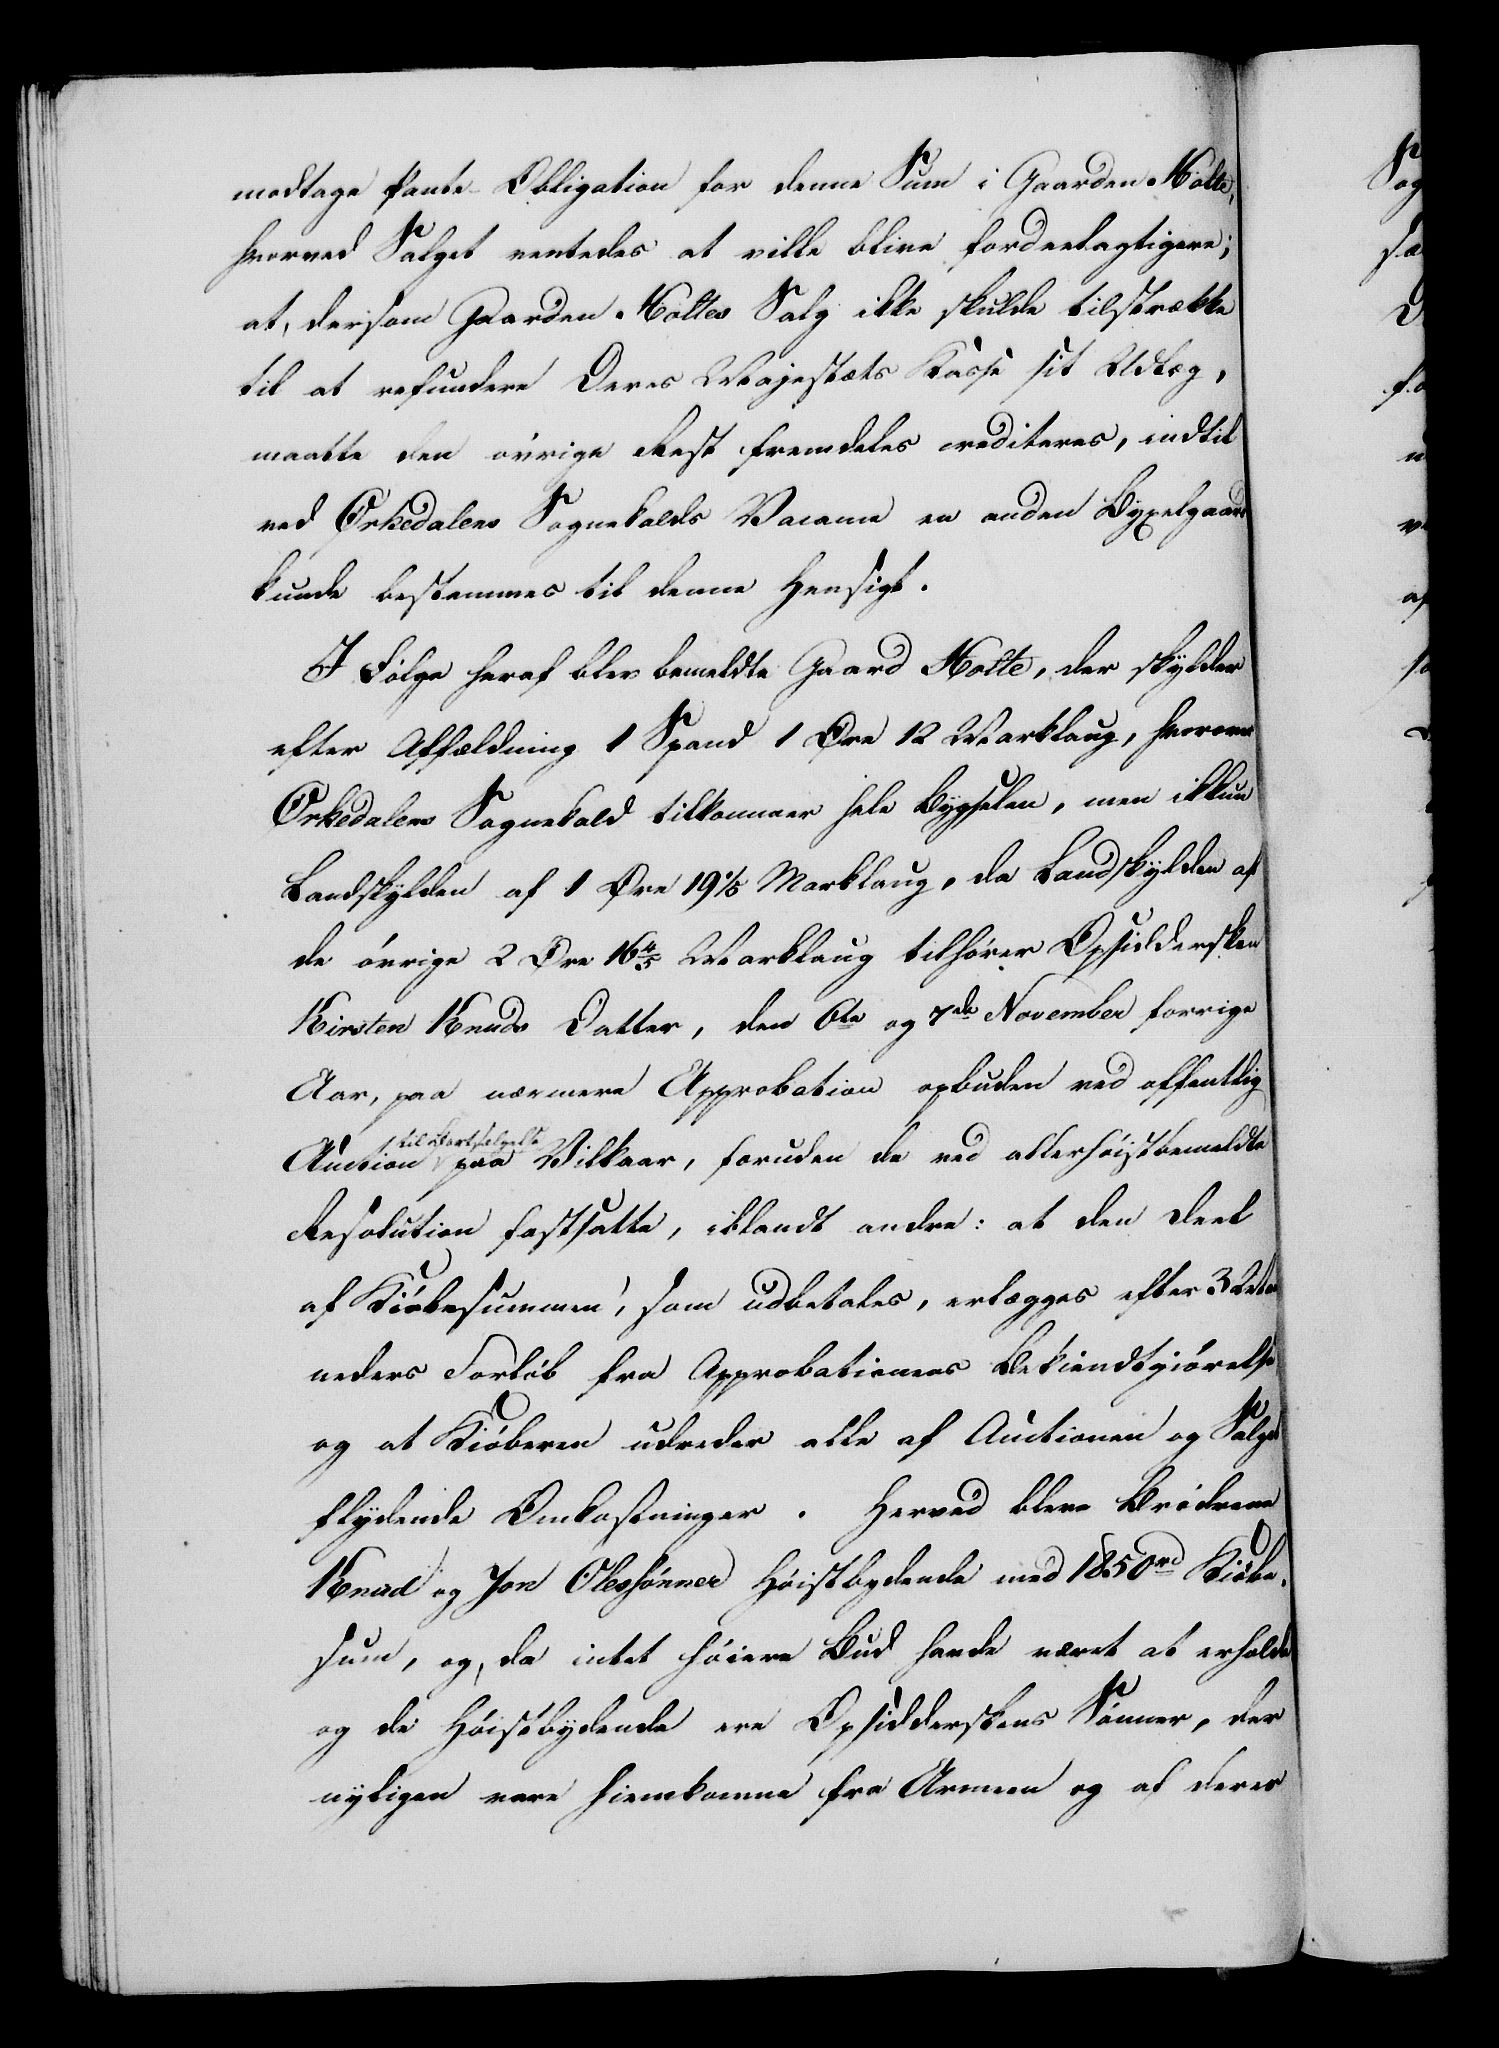 modtage Pante-Obligation for denne Sum i Gaarden Holte,
hvorved Salget ventedes at ville blive fordeelagtigere;
at, dersom Gaarden Holtes Salg ikke skulde tilstrække
til at refundere Deres Majestæts Kasse sit Udlæg,
maatte den øvrige Rest fremdeles crediteres, indtil
ved Ørkedalens Sognekalds Vacance en anden Byxelgaard
kunde bestemmes til denne Hensigt.
I Følge heraf blev bemeldte Gaard Holte, der skylder
efter Affældning 1 Spand 1 Øre 12 Marklaug, hvoraf
Ørkedalens Sognekald tilkommer hele Bygselen, men ikkun
Landskylden af 1 Øre 19 1/5 Marklaug, da Landskylden af
de øvrige 2 Øre 16 4/5 Marklaug tilhører Opsiddersken
Kirsten Knuds Datter, den 6te og 7de November forrige
Aar, paa nærmere Approbation opbuden ved offentlig
til Bortsælgelse
Auction paa Vilkaar, foruden de ved allerhøistbemeldte
Resolution fastsatte, iblandt andre: at den Deel
af Kiøbesummen, som udbetales, erlægges efter 3 Maa
neders Forløb fra Approbationens Bekiendtgiørelse
og at Kiøberen udreder alle af Auctionen og Salget
flydende Omkostninger. Herved bleve Brødrene
Knud og Jon Olessønner Høistbydende med 1850 rd Kiøbe-
sum, og, da intet høiere Bud havde været at erholde
og de Høistbydende ere Opsidderskens Sønner, der
nyligen vare hiemkomne fra Armeen og af deres